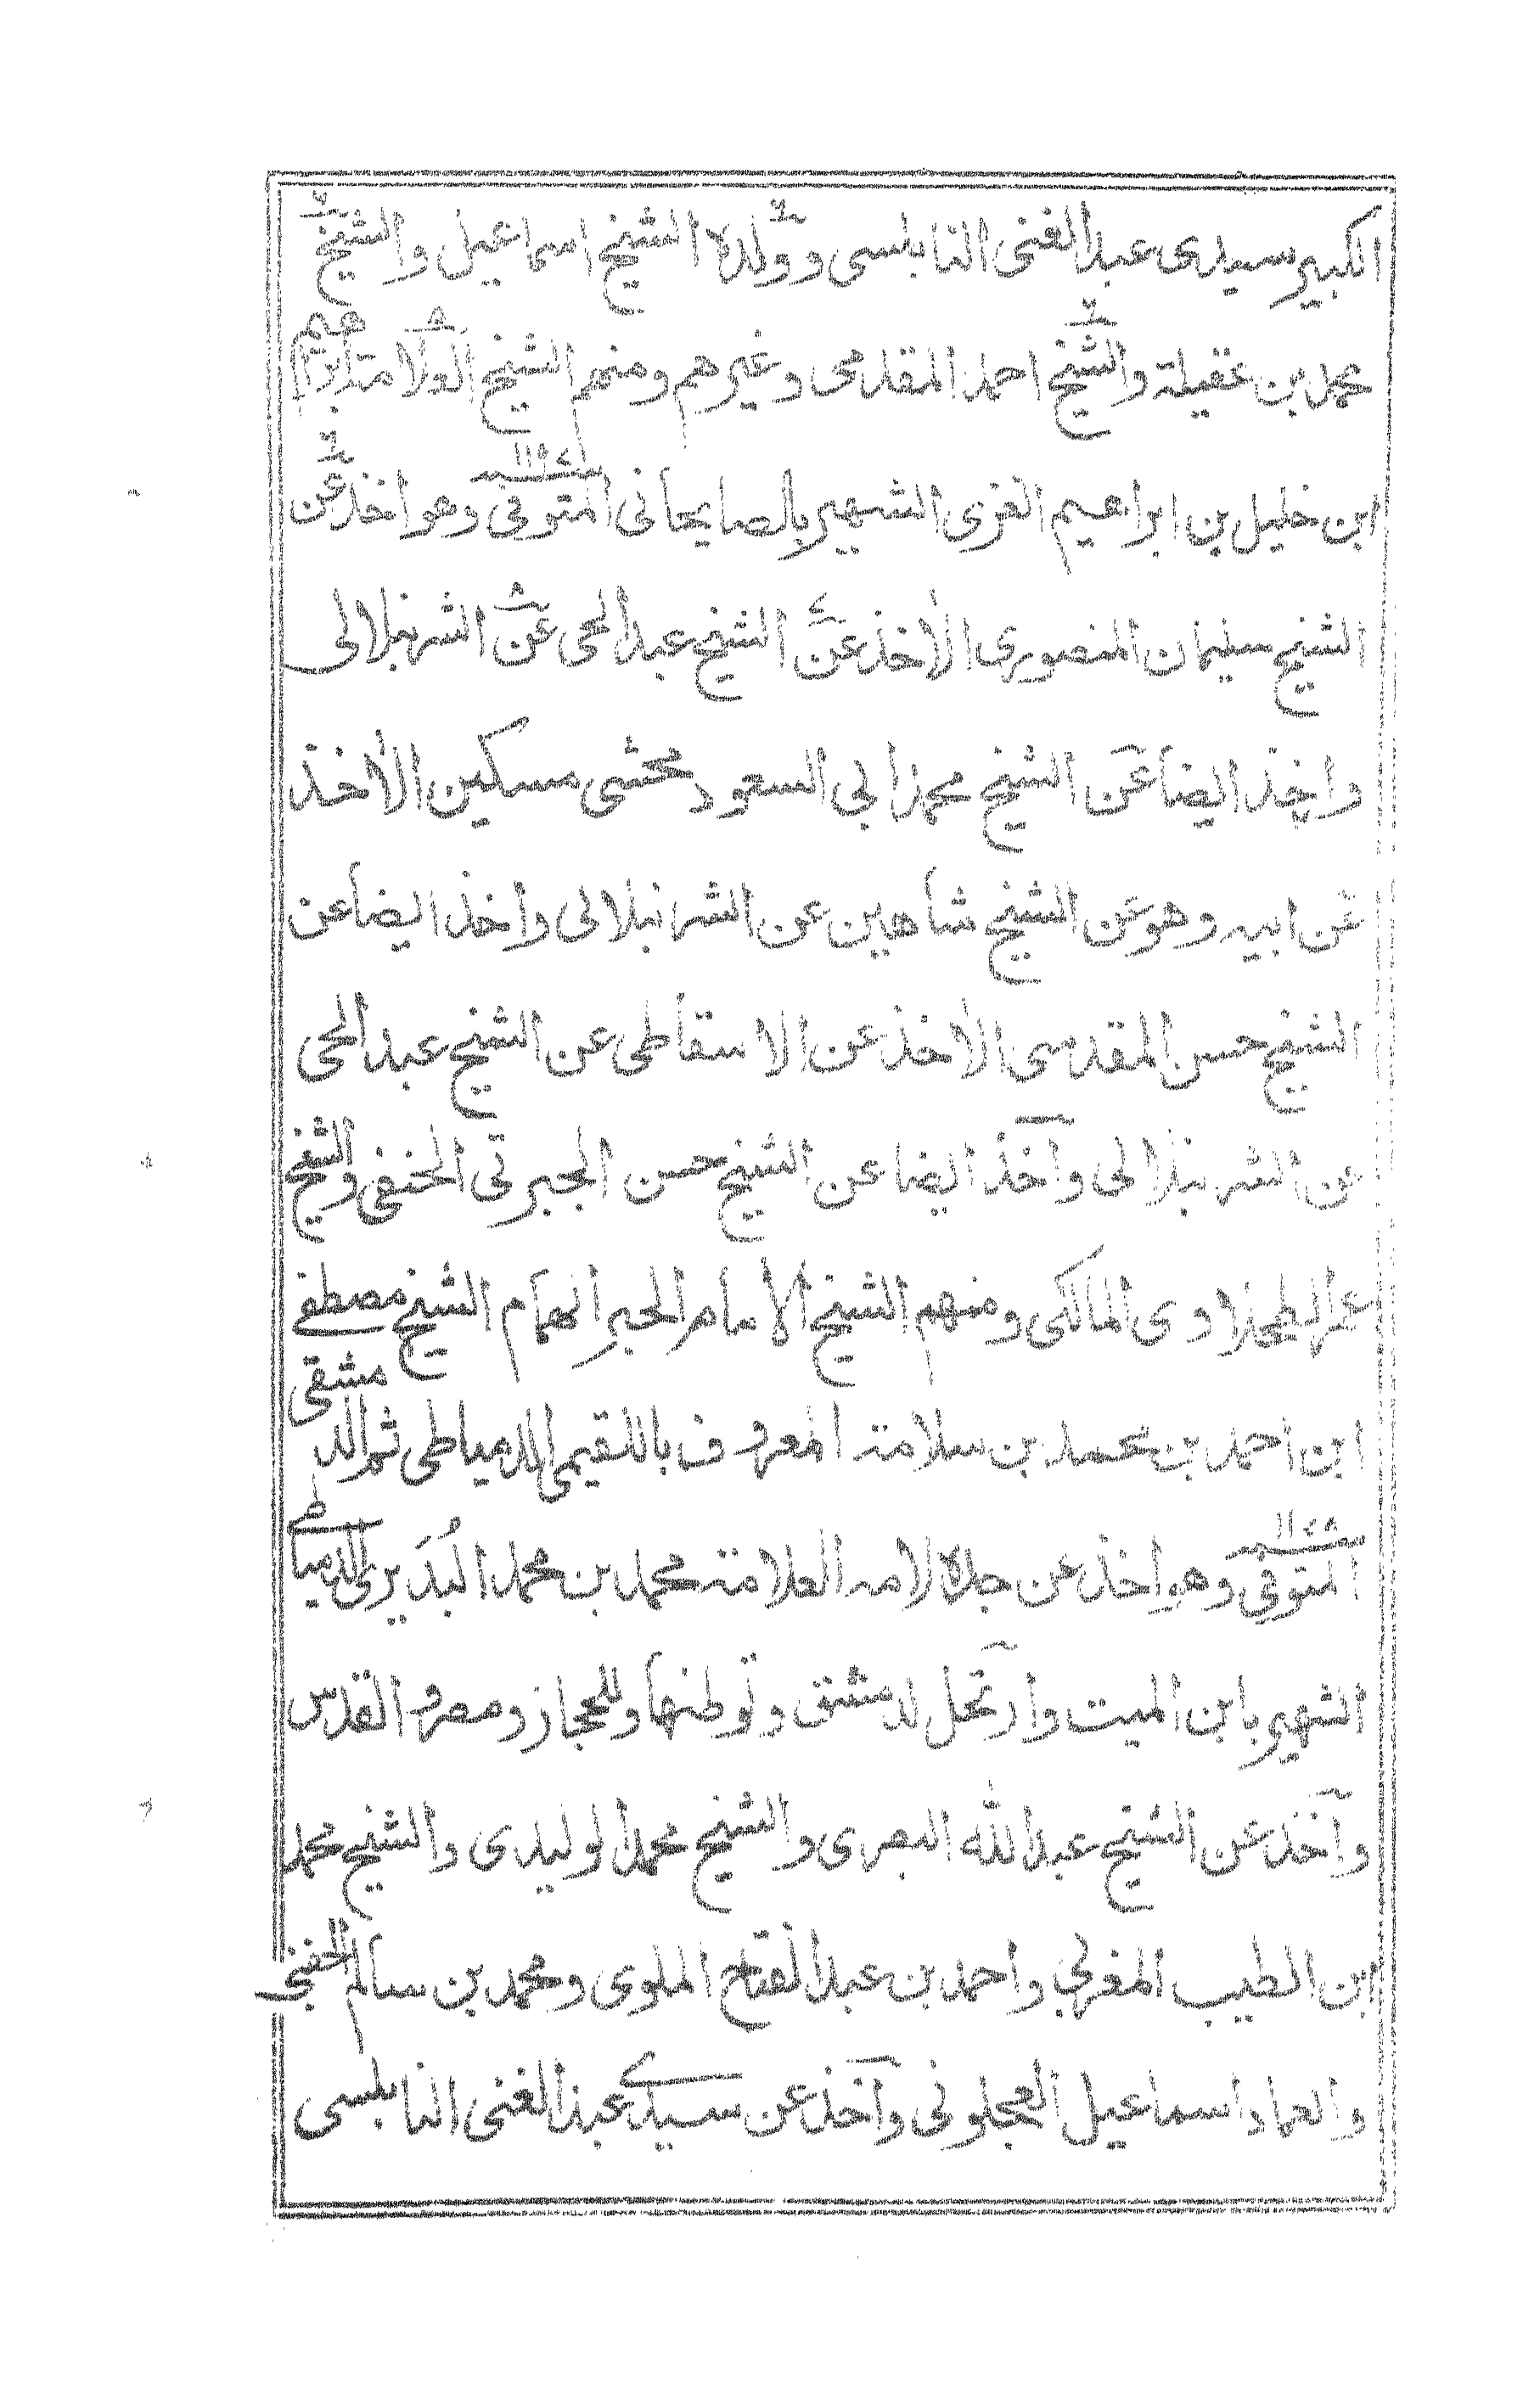 الكبير سيدى عبد الغنى النابلسى وولده الشيخ اسماعيل والشيخ
محمد بن عقيلة والشيخ احمد المقدمى وغيرهم ومنهم الشيخ العلامة ابراهيم
ابن خليل بن ابراهيم الغزى الشهير بالصايحانى المتوفى سنة ١١٩٧ وهو اخذ عن
الشيخ سليمان المنصورى الآخذ عن الشيخ عبد الحى عن الشرنبلالى
واخذ ايضا عن الشيخ محمد ابى السعود محشى مسكين الآخذ
عن ابيه وهو عن الشيخ شاهين عن الشرنبلالى واخذ ايضا عن
الشيخ حسن المقدسى الآخذ عن الاسقاطى عن الشيخ عبد الحى
عن الشرنبلالى وآخذ ايضا عن الشيخ حسن الجبرتى الحنفى والشيخ
عمر الطحلاوى المالكى ومنهم الشيخ الأمام الحبر الهمام الشيخ مصطفى
ابن احمد بن محمد بن سلامة المعروف باللقيمى الدمياطى ثم الدمشقى
المتوفى سنة ١١٧٨ وهو اخذ عن جده لامه العلامة محمد بن محمد البُدَيرى الدمياطى
الشهير بابن الميت وارتحل لدمشق وتوطنها وللحجاز ومصر والقدس
وآخذ عن الشيخ عبد الله البصرى والشيخ محمد الوليدى والشيخ محمد
ابن الطيب المغربى واحمد بن عبد الفتاح الملوى ومحمد بن سالم الحفنى
والعماد اسماعيل العجلونى وآخذ عن سيدى عبد الغنى النابلسى